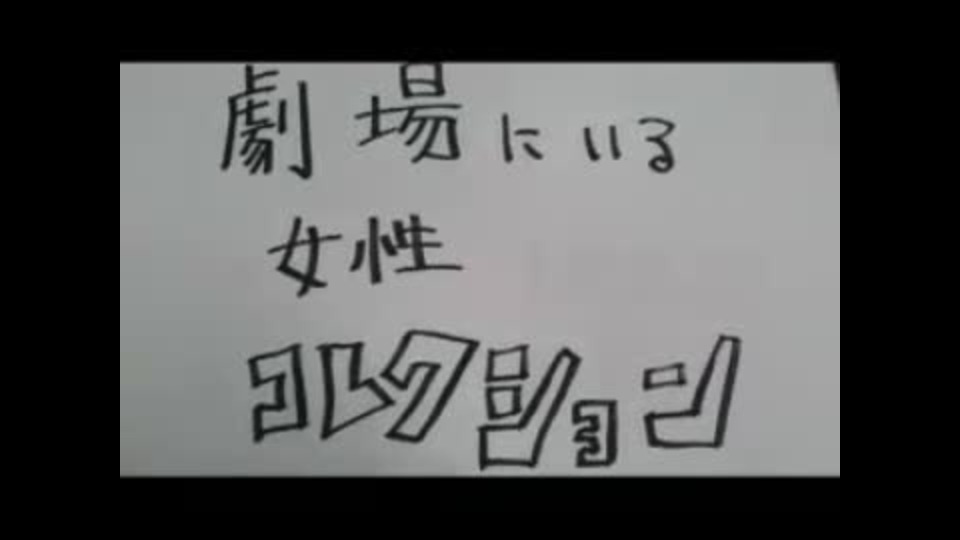 劇場にいる
女性
コレクション